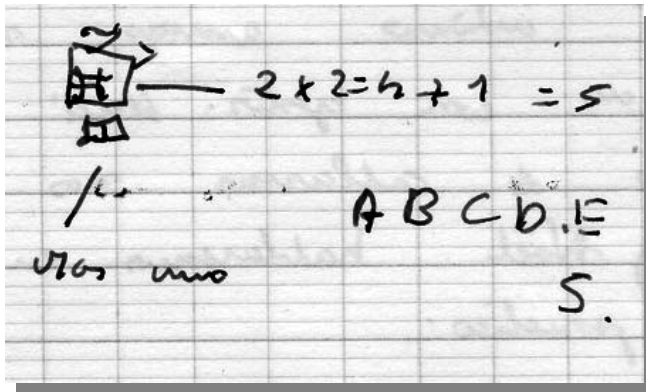 2 x 2 = 4 + 1 = 5
A B C D . E
mas uno
5.